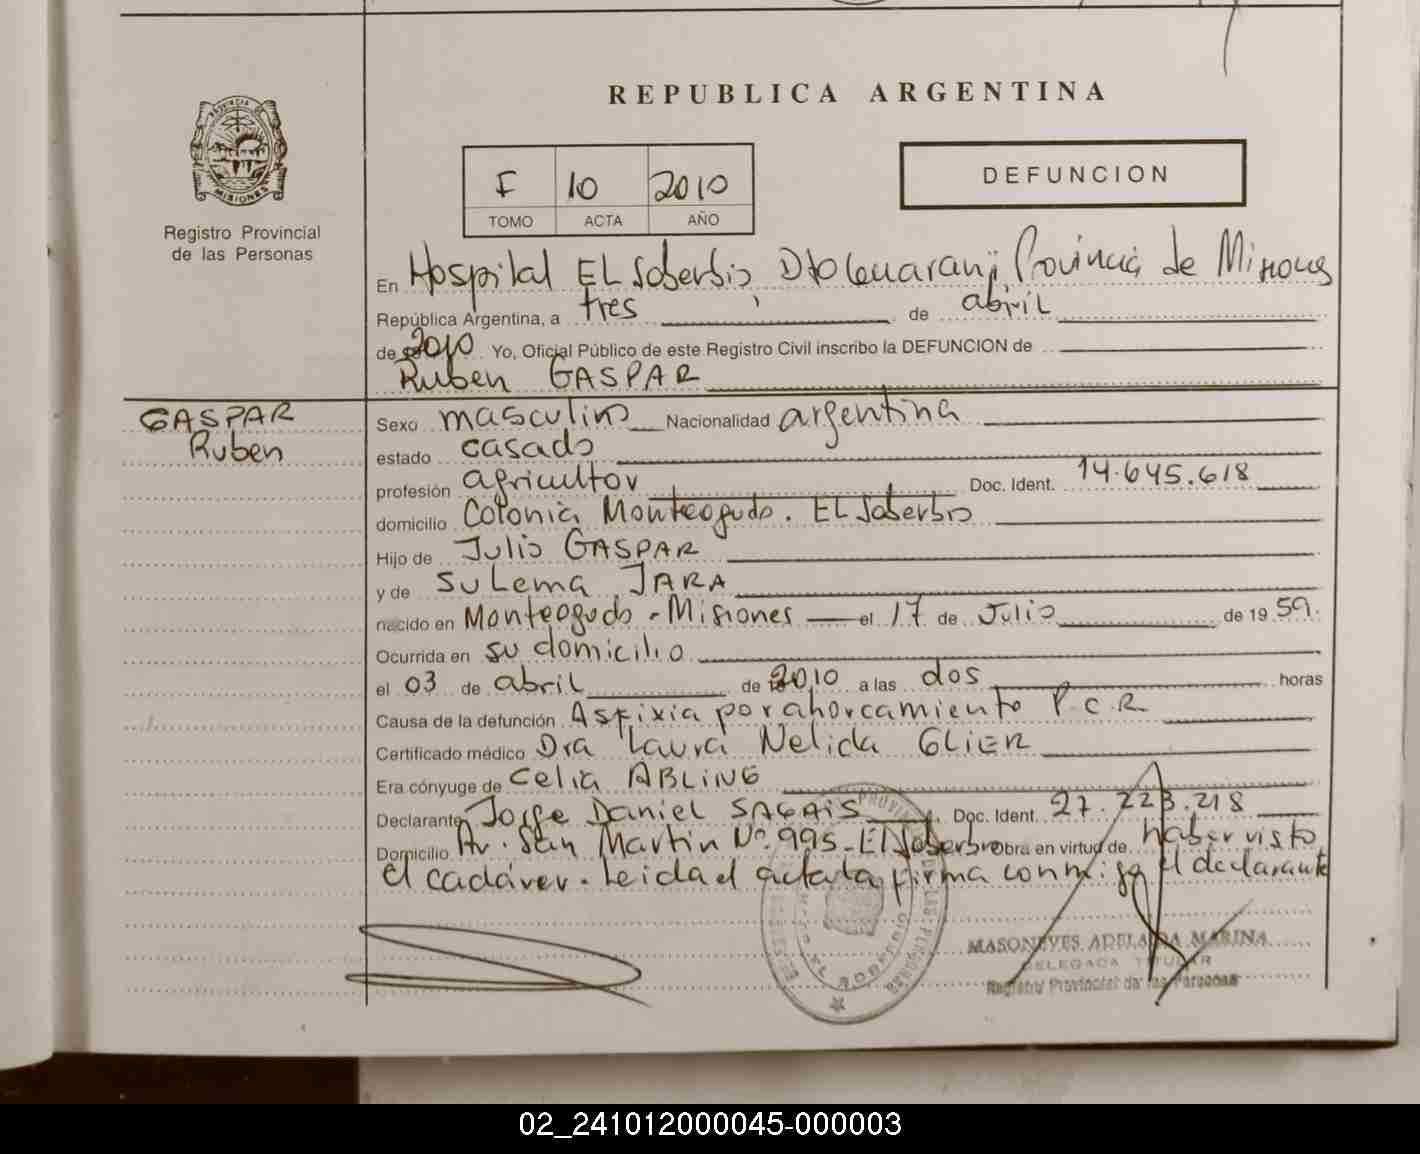 REPUBLICA ARGENTINA
PROVINCIA DE
MISIONES
Registro Provincial
de las Personas
F 10 2010
TOMO ACTA AÑO
DEFUNCION
En Hospital EL Soberbio, Dto Guarani, Provincia de Misiones
República Argentina, a tres de abril
de 2010 Yo, Oficial Público de este Registro Civil inscribo la DEFUNCION de
Ruben GASPAR
GASPAR
Ruben
Sexo masculino Nacionalidad argentina
estado casado
profesión agricultor Doc. Ident. 14.645.618
domicilio Colonia Monteagudo. EL Soberbio
Hijo de Julio GASPAR
y de SuLema JARA
nacido en Monteagudo - Misiones el 17 de Julio de 1959.
Ocurrida en su domicilio
el 03 de abril de 2010 a las dos horas
Causa de la defunción Asfixia por ahorcamiento P C R
Certificado médico Dra Laura Nelida GLIER
Era cónyuge de Celia ABLING
Declarante Jorge Daniel SAGAIS Doc. Ident. 27.223.218
Domicilio Av. San Martin Nº 995 - El Soberbio Obra en virtud de haber visto
el cadáver. Leida el acta la firma conmigo el declarante
MASONEYES ADELAIDA MARINA
DELEGADA TITULAR
Registro Provincial de las Personas
02_241012000045-000003